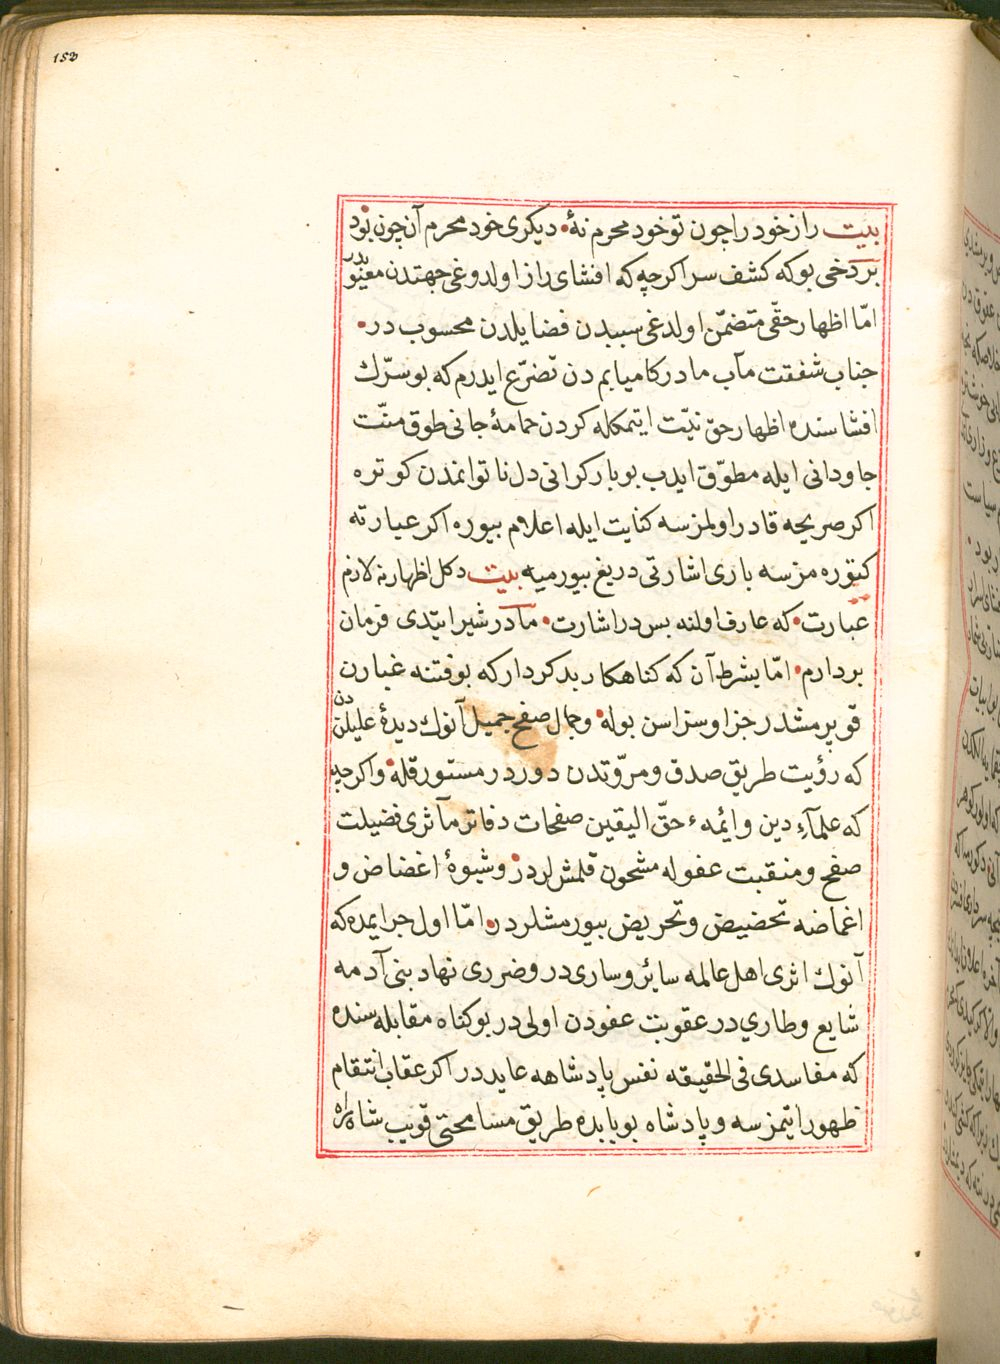 152
بیت راز خود را چون تو خود محرم نهٔ دیکری خود محرم آن چون بود
بر دخی بو که کشف سر اکرچه که افشای راز اولدوغی جهتدن معیّودر
امّا اظهار حقّی متضمّن اولدغی سببدن فضایلدن محسوب در
جناب شفقت مآب مادر کامیابم دن تضرّع ایدرم که بو سرّك
افشاسنده اظهار حق نیّت ایتمکله کردن حمامهٔ جانی طوق منّت
جاودانی ایله مطوّق ایدب بو بار کرانی دل ناتوانمدن کوتره
اکر صریحه قادر اولمزسه کنایت ایله اعلام بیوره اکر عبارته
کتوره مزسه باری اشارتی دریغ بیورمیه بیت دکل اظهارنه لازم
عبارت که عارف اولنه بس در اشارت مادر شیر ایتدی فرمان
بردارم امّا بشرط آن که کناهکار بد کردار که بو فتنه غبارن
قوپرمشدر جزا و سزاسن بوله و جمال صفح جمیل آنوك دیدهٔ علیلندن
که رؤیت طریق صدق و مروّتدن دوردر مستور قله و اکرچه
که علمآء دین و ایٔمهٔ حقّ الیقین صفحات دفاتر مآثری فضیلت
صفح و منقبت عفو له مشحون قلمشلردر و شیوهٔ اغضاض و
اغماضه تحضیض و تحریض بیورمشلردر امّا اول جرایمده که
آنوك اثری اهل عالمه سائر و ساری در و ضرری نهاد بنی آدمه
شایع و طاری در عقوبت عفودن اولی در بو کناه مقابله سنده
که مفاسدی فی الحقیقه نفس پادشاهه عایددر اکر عقاب انتقام
ظهور ایتمزسه و پادشاه بو بابده طریق مسامحتی قویب شاهراه